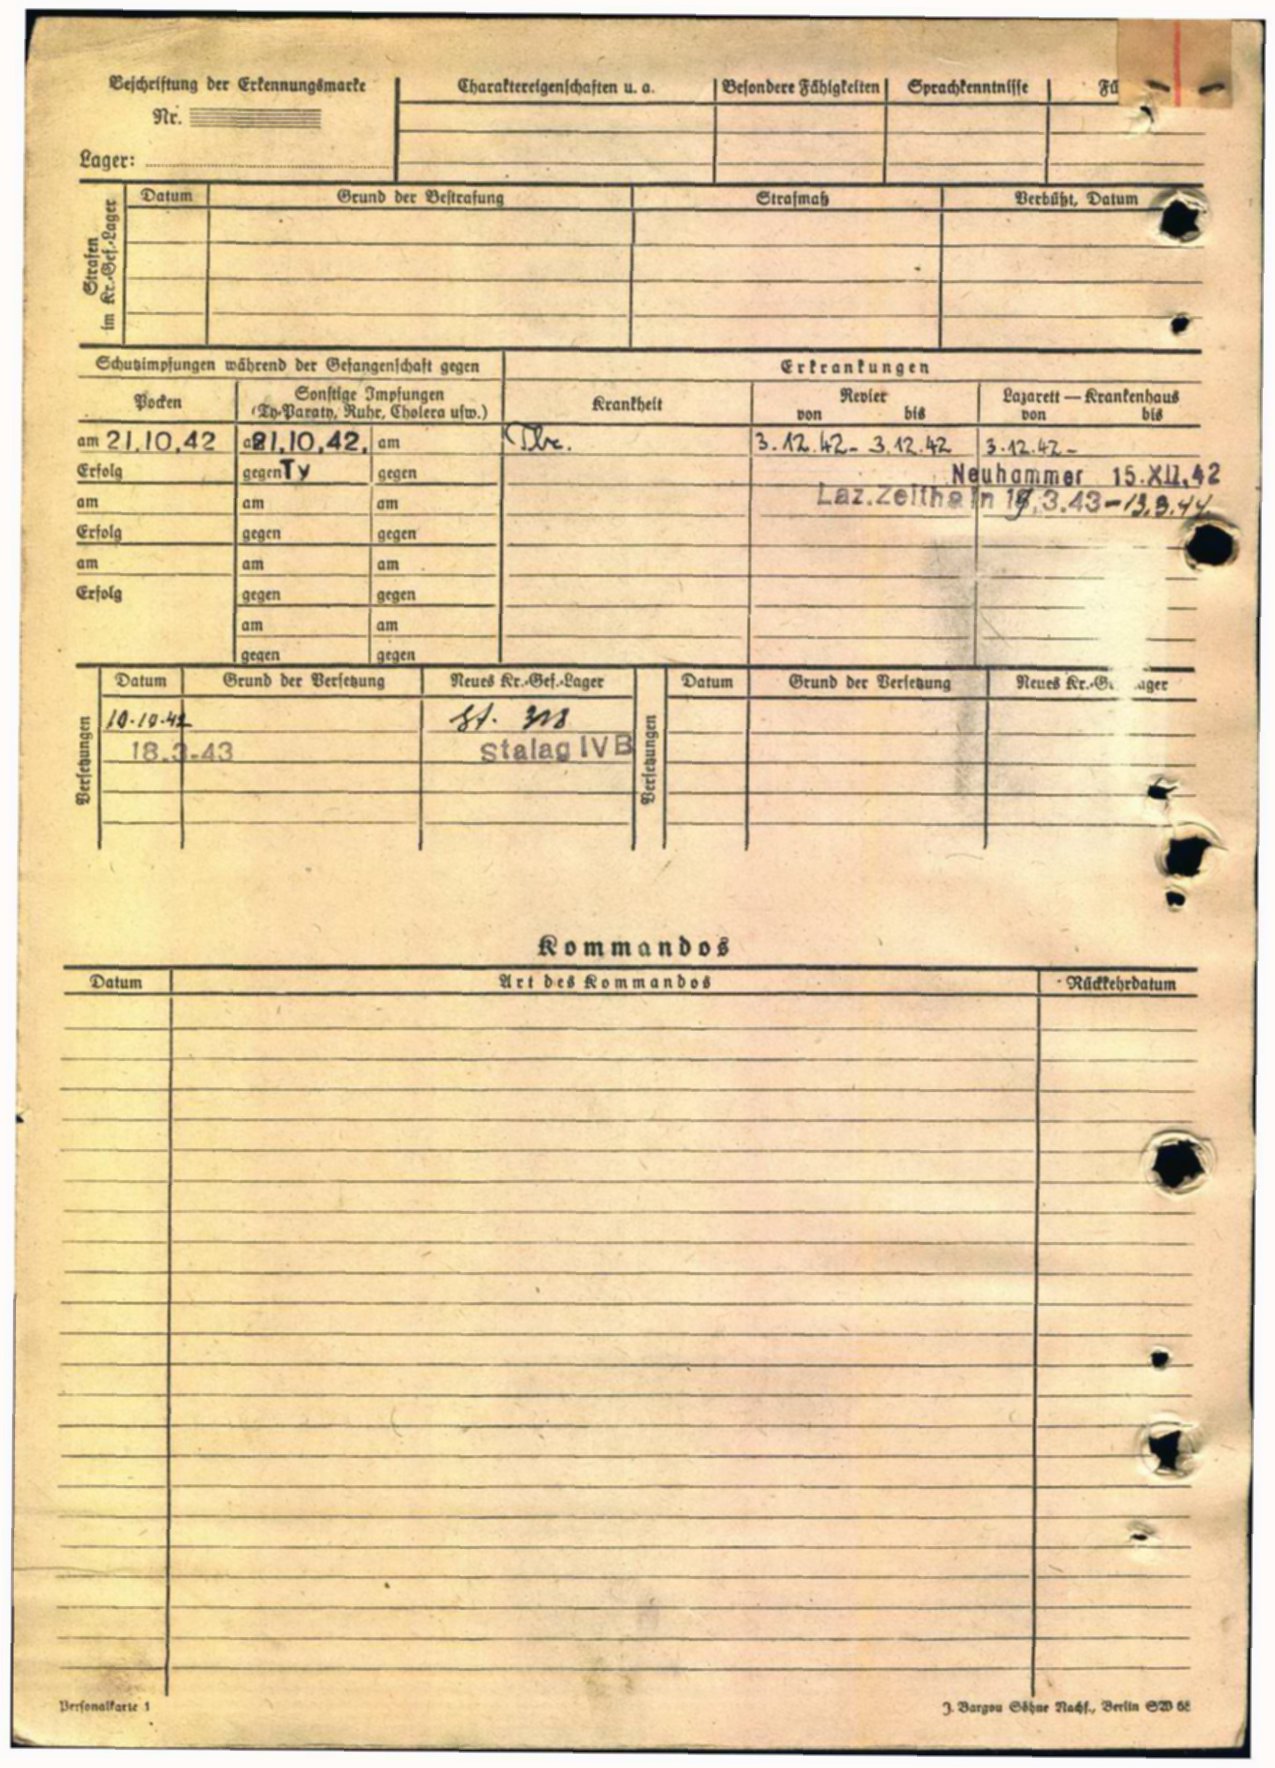 Beschriftung der Erkennungsmarke
Nr.
Lager:
Charaktereigenschaften u. a.
Besondere Fähigkeiten
Sprachkenntnisse
Fü
Strafen im Kr.-Gef.-Lager
Datum
Grund der Bestrafung
Strafmaß
Verbüßt, Datum
Schutzimpfungen während der Gefangenschaft gegen
Erkrankungen
Pocken
Sonstige Impfungen
(Ty-Paraty, Ruhr, Cholera usw.)
Krankheit
Revier
von bis
Lazarett — Krankenhaus
von bis
am 21.10.42 a 21.10.42. am Tbc. 3.12.42- 3.12.42 3.12.42-
Erfolg gegen Ty gegen Neuhammer 15.XII.42
am am am Laz.Zeithain 3.43-13.3.44.
Erfolg gegen gegen
am am am
Erfolg gegen gegen
am am
gegen gegen
Versetzungen
Datum Grund der Versetzung Neues Kr.-Gef.-Lager
10.10.42 St. 318
18.3.43 Stalag IV B
Versetzungen
Datum Grund der Versetzung Neues Kr.-G ager
Kommandos
Datum Art des Kommandos Rückkehrdatum
Personalkarte 1
J. Bargou Söhne Nachf., Berlin SW 68